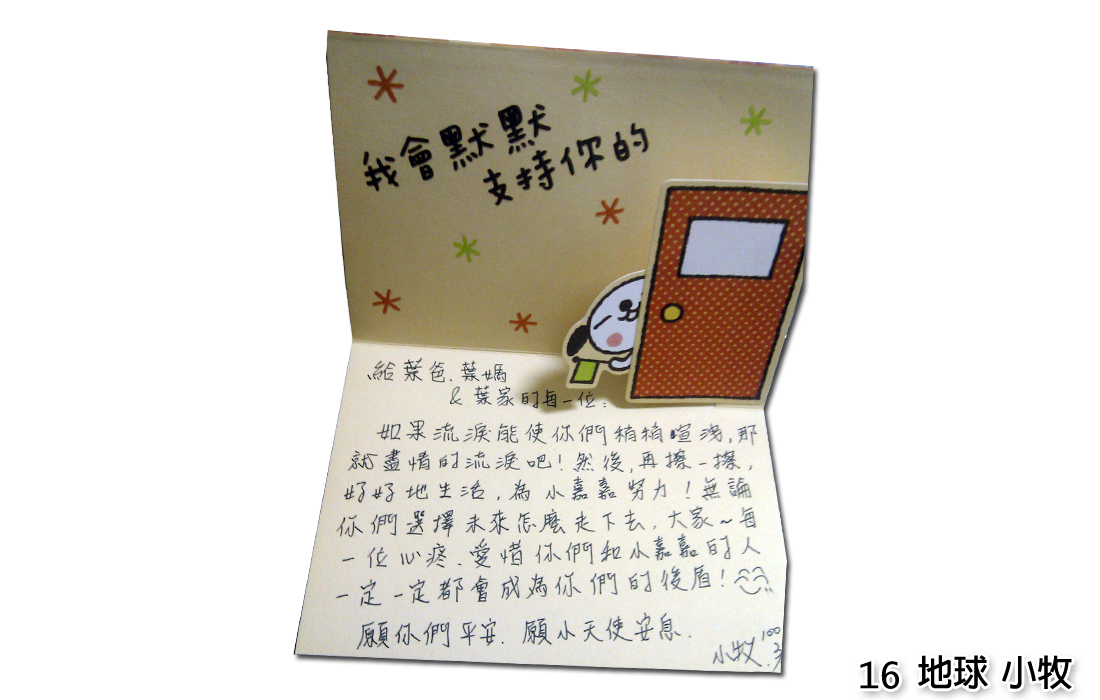 我會默默
支持你的
給葉爸.葉媽
& 葉家的每一位:
如果流淚能使你們稍稍喧洩,那
就盡情的流淚吧!然後,再擦一擦,
好好地生活,為小嘉嘉努力!無論
你們選擇未來怎麼走下去,大家~每
一位心疼.愛惜你們和小嘉嘉的人
一定一定都會成為你們的後盾!
願你們平安.願小天使安息.
小牧 100.3
16 地球 小牧